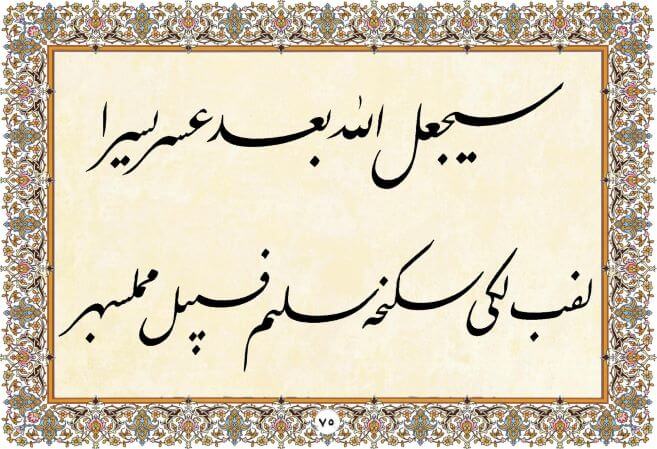 سیجعل الله بعد عسر یسرا
لفب لکی سکنحه سلیم فسپل مملسهر
۷۵